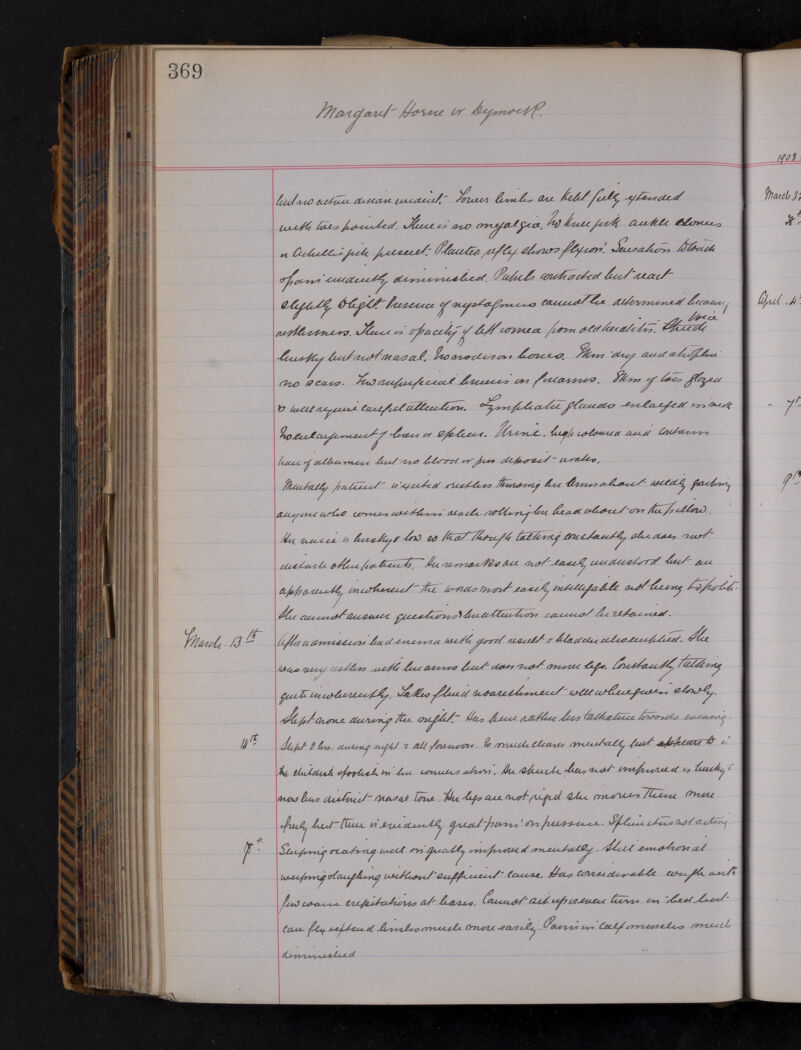 369
Margaret Horne or Dymock.
1908
but no active disease evident. Lower limbs are kept fully extended
with toes pointed. There is no myalgia. No knee jerk ankle clonus
or Achillis jerk present. Plantar reflex shows flexion. Sensation to
pain evidently diminished. Pupils contracted but react
slightly to light. Presence of nystagmus cannot be determined because of
restlessness. There is opacity of left cornea from old keratitis. Voice
husky but not nasal. No nodes on bones. Skin dry and
no scars. Few superficial bruises on forearms. Skin of toes glazed
& will require careful attention. Lymphatic glands enlarged in neck
No enlargement of liver or spleen. Urine. high coloured and contains
trace of albumen but no blood or pus deposit - urates.
Mentally patient is excited & restless throwing her arms about wildly
anyone who comes within reach. rolling her head about on the pillow.
Her voice is husky & low so that though talking constantly she does not
disturb other patients. Her remarks are not easily understood but are
apparently incoherent the words most easily intelligible not being too polite.
She cannot answer questions & her attention cannot be retained.
March. 13th After admission had enema with good result & bladder also emptied. She
was very restless with her arms but does not move legs. Constantly talking
quite incoherently. Takes fluid nourishment well when given slowly.
Slept none during the night. Has been rather less talkative towards evening.
14th Slept 2 hrs. during night & all forenoon. Is much clearer mentally but appears to
be childish & foolish in her conversation. Her speech has not improved is husky &
now has distinct nasal tone. Her legs are not rigid she moves them more
freely but there is evidently great pain on pressure. Sphincters not acting
17th Sleeping & eating well is greatly improved mentally. Still emotional
weeping & laughing without sufficient cause. Has considerable cough with
few coarse crepitations at bases. Cannot sit up or even turn in bed but
can flex & extend limbs much more easily. Pains in calf muscles much
diminished
March 22
April. 4
7th
9th